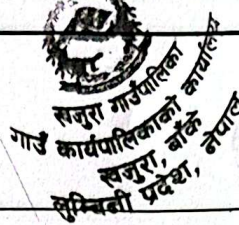 खजुरा गाउँपालिका
गाउँ कार्यपालिकाको कार्यालय
खजुरा, बाँके
लुम्बिनी प्रदेश, नेपाल